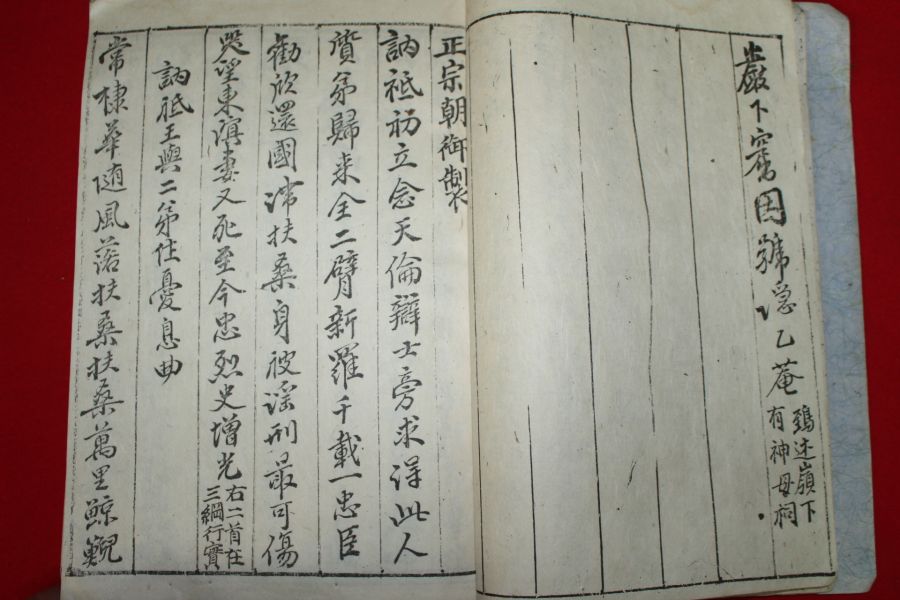 巖下因號隱乙菴
鵄述嶺下
有神母祠
正宗朝御製
訥祗初立念天倫辯士旁求得此人
質弟歸来全二臂新羅千載一忠臣
勸欣還國滯扶桑身被淫刑最可傷
哭望東溟妻又死至今忠烈史增光
右二首在
三綱行實
訥祗王與二弟作憂息曲
常棣華隨風落扶桑扶桑萬里鯨鯢